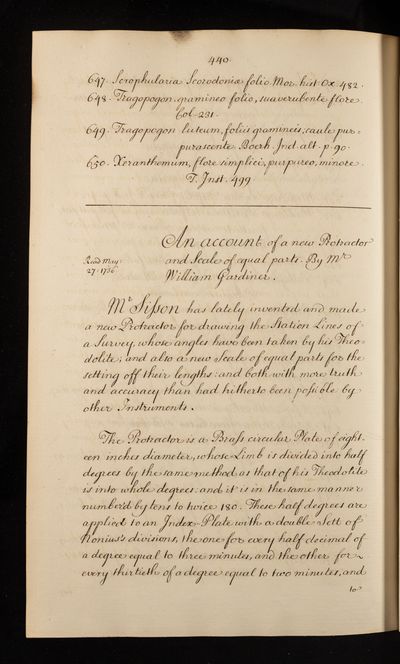 440
647. Scrophularia Scorodoniæ folio Mor. hist. Ox. 482.
648. Tragopogon gramineo folio, suaverubente flore.
Col. 231.
649. Tragopogon luteum, foliis gramineis, caule pur=
purascente. Boerh. Ind. alt. p. 90.
650. Xeranthemum, flore simplici, purpureo, minore.
T. Inst. 499
An account of a new Protractor
Read May
27. 1736.
and Scale of equal parts. By Mr
William Gardiner.
Mr Sisson has lately invented and made
a new Protractor for drawing the Station Lines of
a Survey, whose angles have been taken by his Theo=
dolite; and also a new Scale of equal parts for the
setting off their lengths: and both with more truth
and accuracy than had hitherto been possible by
other Instruments.
The Protractor is a Brass circular Plate of eight-
een inches diameter, whose Limb is divided into half
degrees by the same method as that of his Theodolite
is into whole degrees: and it is in the same manner
number'd by tens to twice 180. These half degrees are
applied to an Index-Plate with a double Sett of
Nonius's divisions, the one for every half decimal of
a degree equal to three minutes, and the other for
every thirtieth of a degree equal to two minutes, and
to